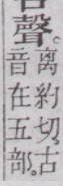 聲。
离約切。古
音在五部。